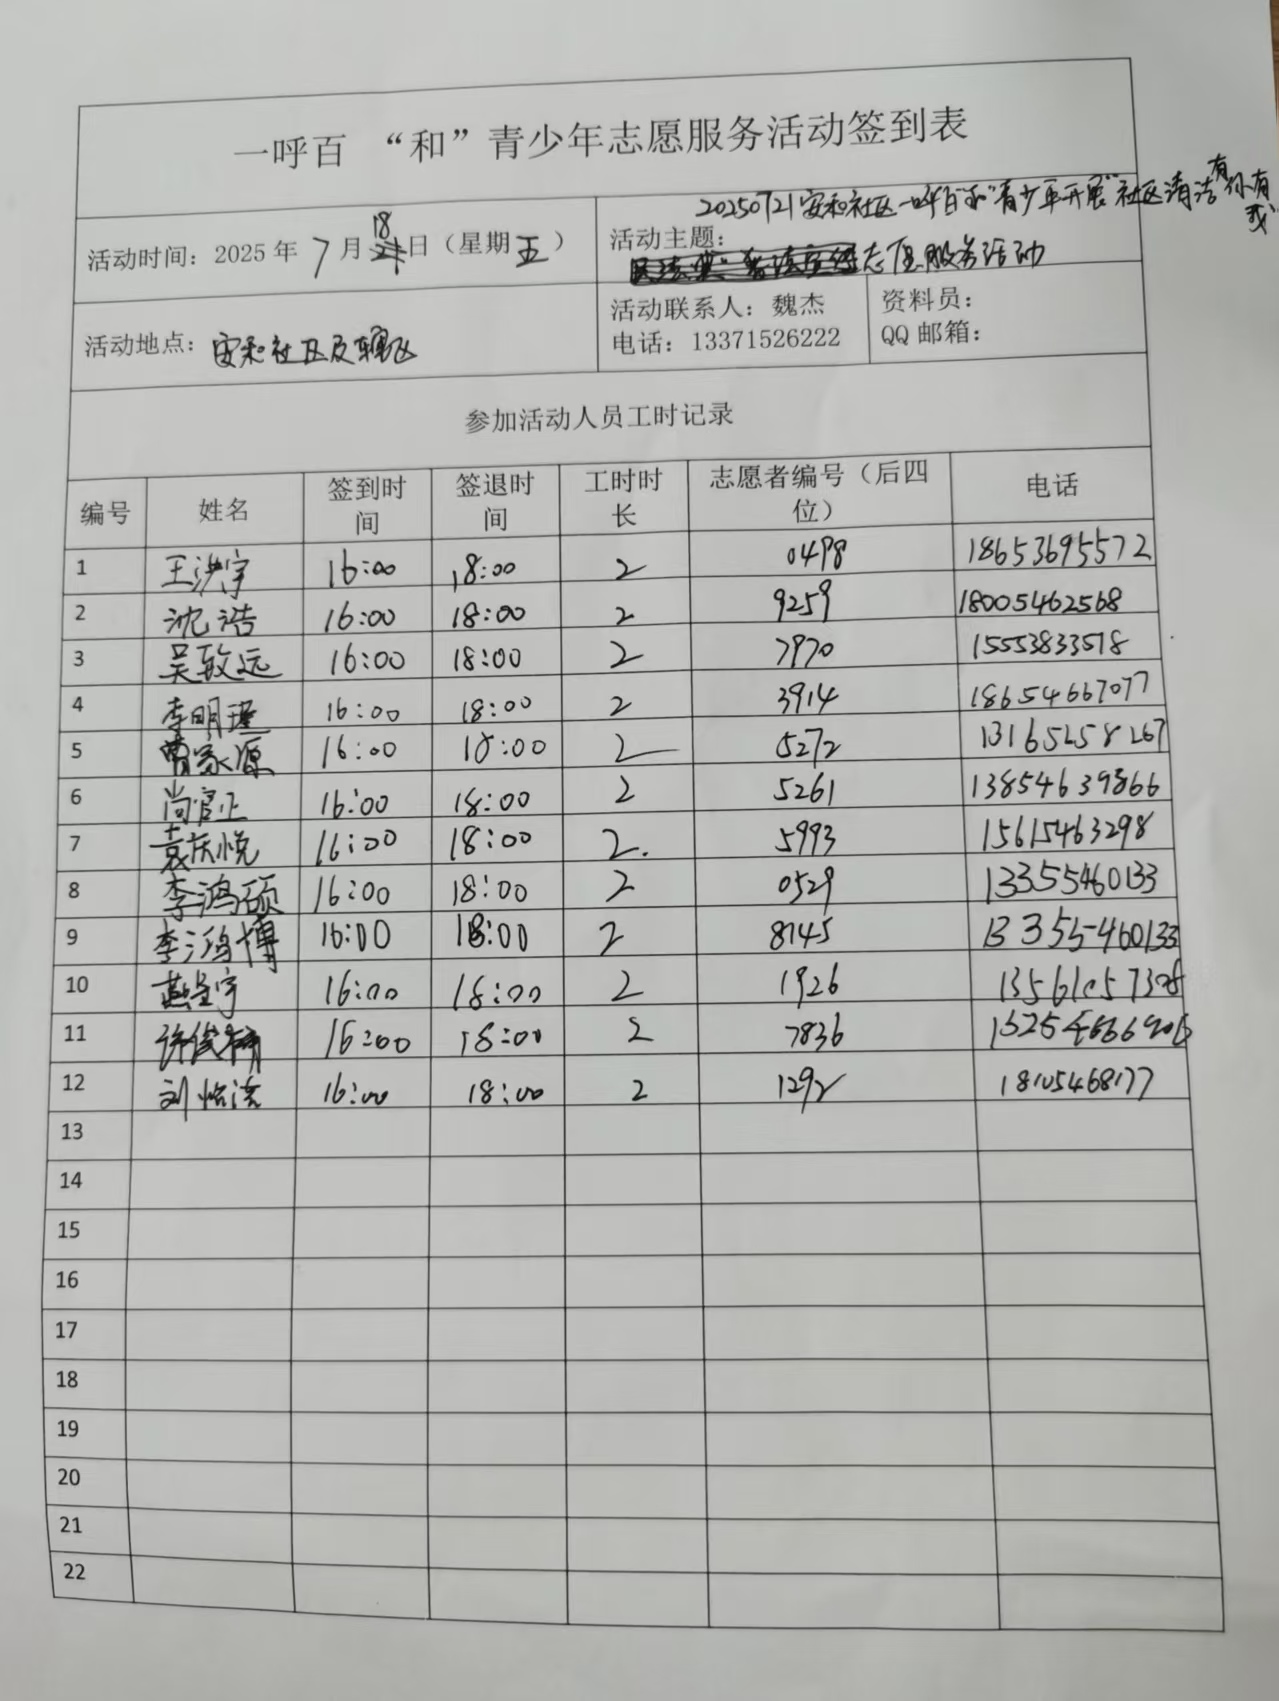 一呼百 “和”青少年志愿服务活动签到表
活动时间：2025年 7 月 18 日（星期 五 ）
活动主题：
20250721安和社区一呼百“和”青少年开展“社区清洁有你有我”
志愿服务活动
活动地点：安和社区及辖区
活动联系人：魏杰
电话：13371526222
资料员：
QQ邮箱：
参加活动人员工时记录
编号 姓名 签到时间 签退时间 工时时长 志愿者编号（后四位） 电话
1 王洪宇 16:00 18:00 2 0498 18653695572
2 沈浩 16:00 18:00 2 9259 18005462568
3 吴致远 16:00 18:00 2 7970 15553833518
4 李明瑾 16:00 18:00 2 3914 18654667077
5 曹家源 16:00 18:00 2 5272 13165258267
6 尚官正 16:00 18:00 2 5261 13854639866
7 袁庆悦 16:00 18:00 2 5993 15615463298
8 李鸿硕 16:00 18:00 2 0529 13355460133
9 李鸿博 16:00 18:00 2 8145 13355460133
10 16:00 18:00 2 1926
11 16:00 18:00 2 7836
12 刘怡 16:00 18:00 2 1292 18105468177
13
14
15
16
17
18
19
20
21
22